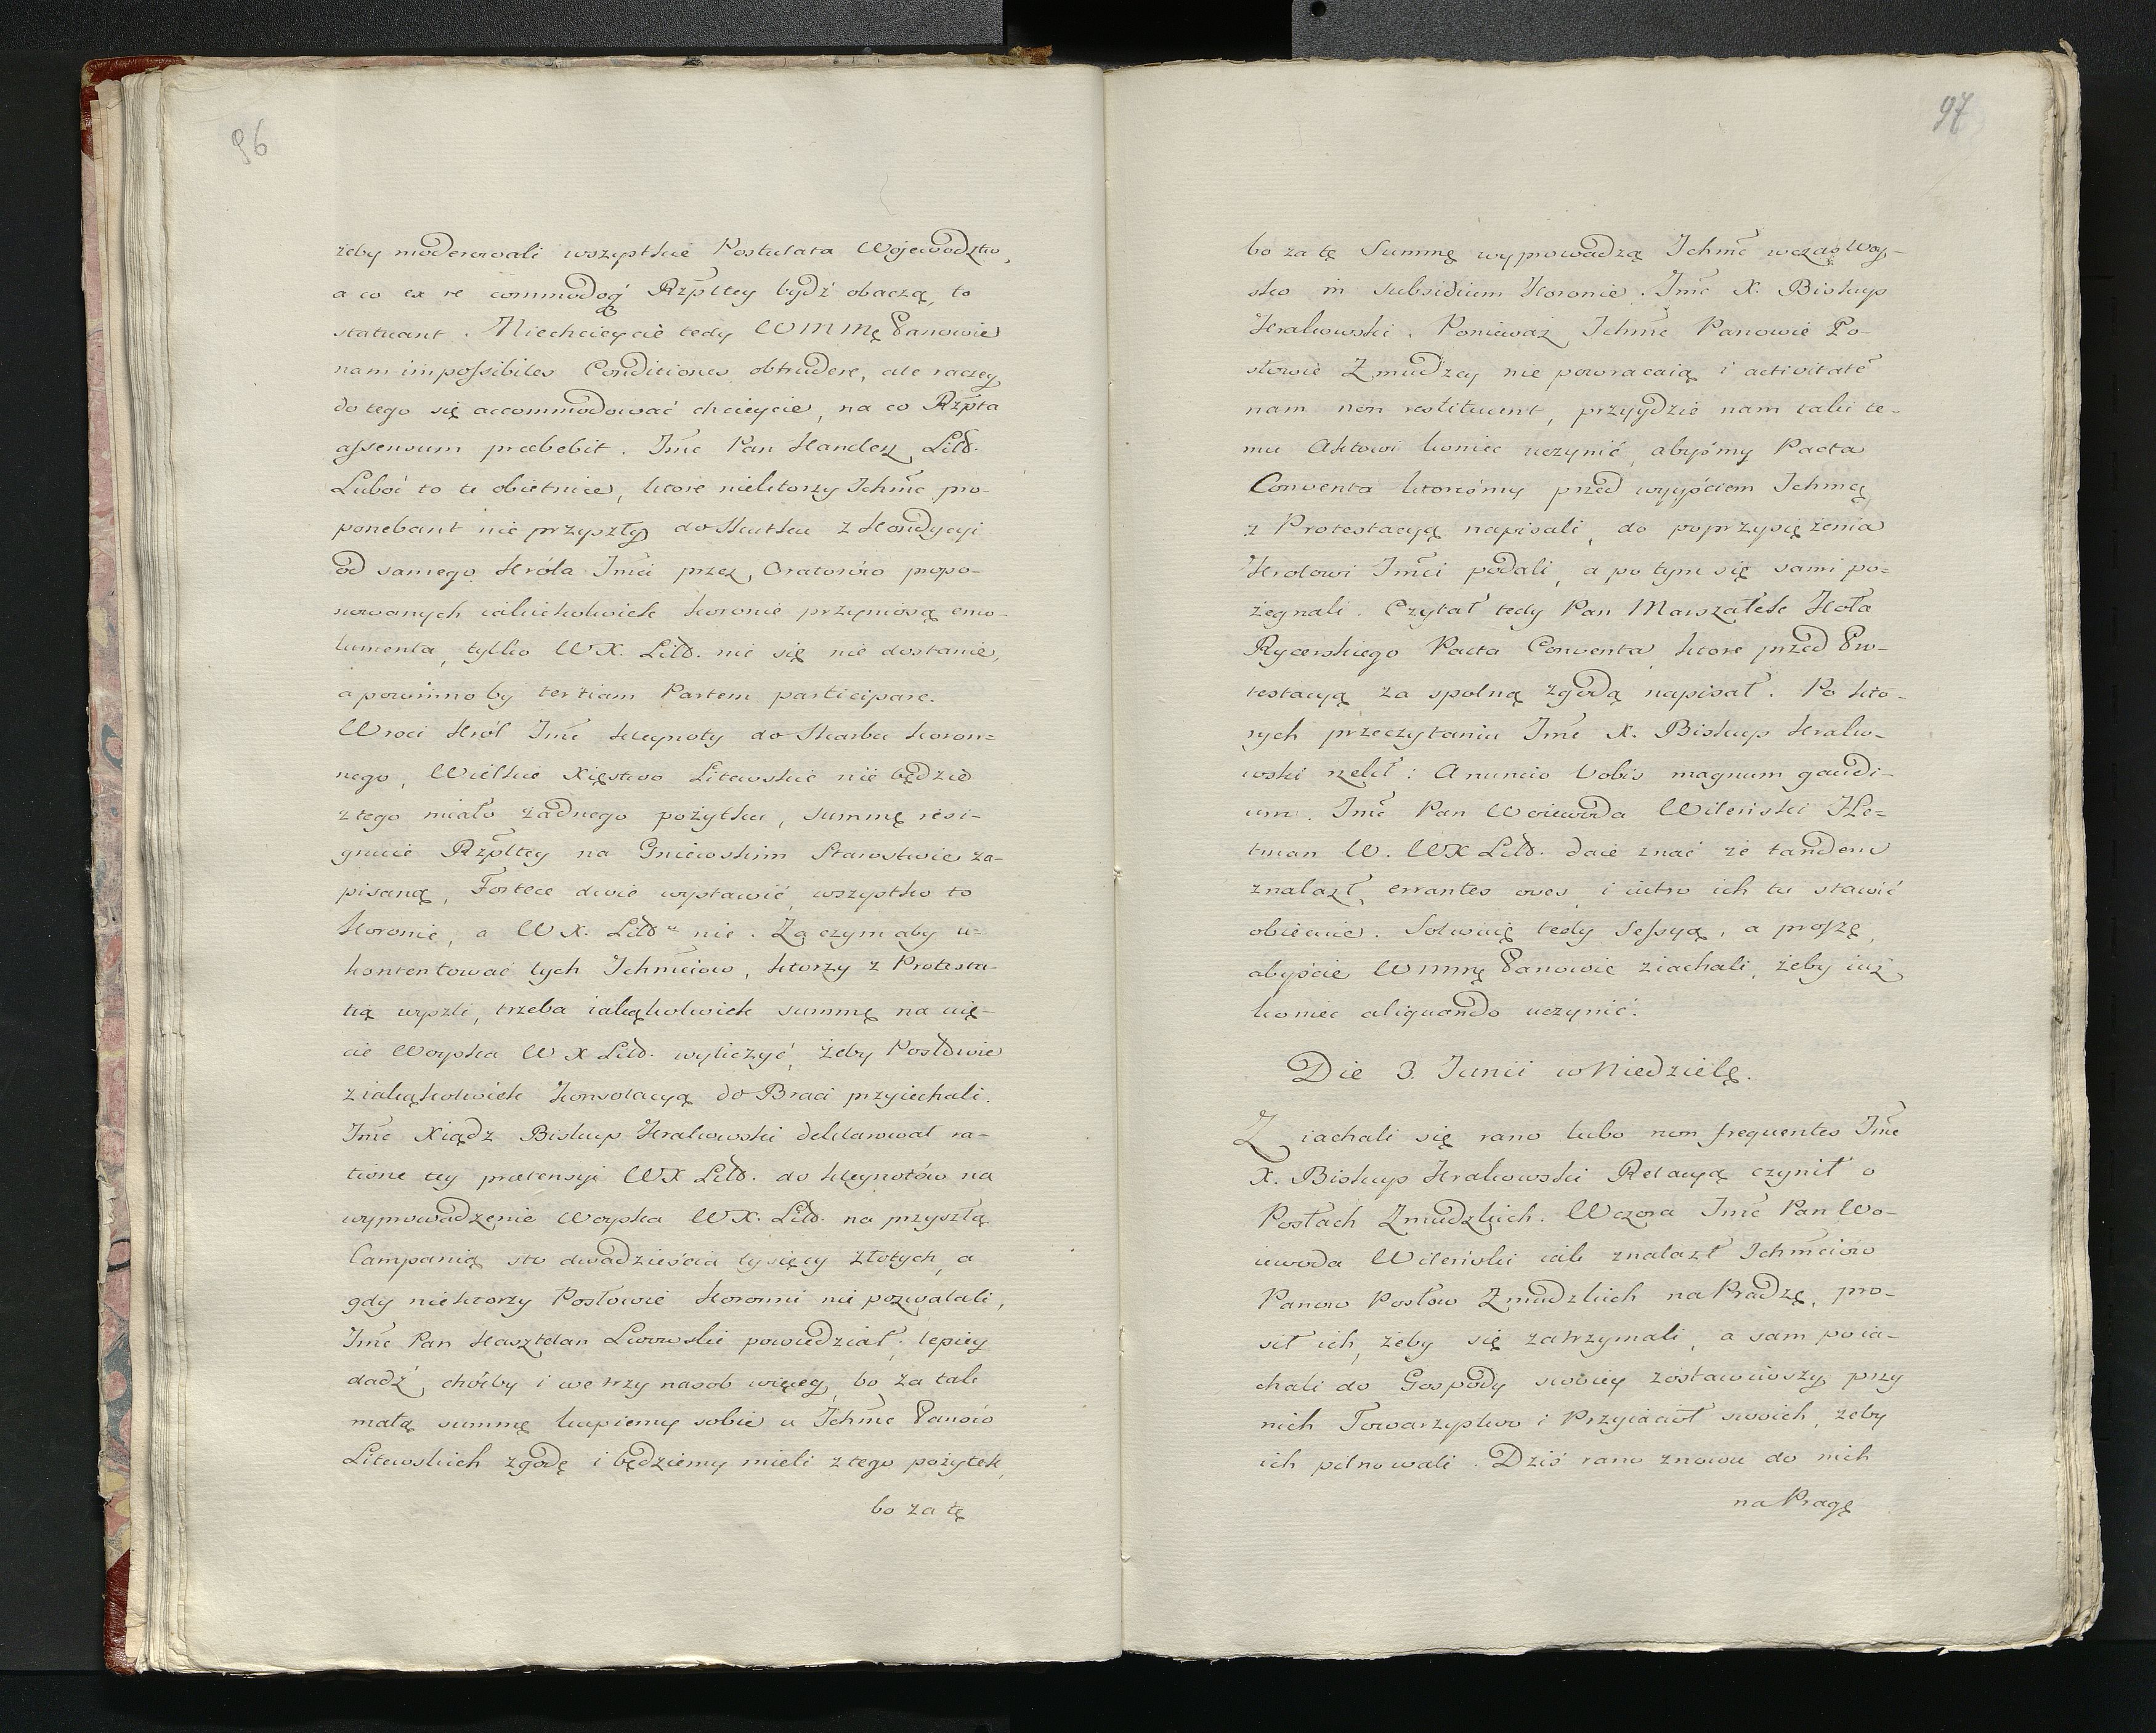 96
żeby moderowali wszystkie Postulata Wojewodztw,
a co ex re commodoq̃ Rzpltey bydź obaczą, to
statuant. Niechcieycie tedy WMMę Panowie
nam impossibiles Conditiones obtrudere, ale raczey
do tego się accommodować chcieycie, na co Rzpta
assensum præbebit. Jmć Pan Kanclerz Litt.
Luboć to te obietnice, ktore niektorzy Ichmć pro-
ponebant nie przyszły do skutku z Kondycyi
od samego Króla Jmći przez Oratorów propo-
nowanych iakiekolwiek koronie przyniosą emo-
lumenta, tylko WX. Litt. nic się nie dostanie,
a powinno by tertiam Partem participare.
Wroci Król Jmć kleynoty do Skarbu koron=
nego, Wielkie Xięstwo Litewskie nie będzie
z tego miało żadnego pożytku, summę resi-
gnuie Rzpltey na Gniewskim Starostwie za-
pisaną, Fortece dwie wystawić, wszystko to
koronie, a WX. Litt. nic. Zaczym aby u=
kontentować tych Ichmciow, ktorzy z Protesta-
tią wyszli, trzeba iakąkolwiek summę na uię-
cie Woyska WX Litt. wyliczyć, żeby Posłowie
z iakąkolwiek konsolacyą do Braci przyiechali.
Jmć Xiądz Biskup Krakowski deklarował ra-
tione tey prætensyi WX Litt. do kleynotów na
wyprowadzenie Woyska WX. Litt. na przyszłą
Campanią sto dwadzieścia tysięcy złotych, a
gdy niektorzy Posłowie koronni nie pozwalali,
Jmć Pan Kasztelan Lwowski powiedział, lepiey
dadź, chóćby i we trzy nasob więcey, bo za tak
małą summę kupiemy sobie u Ichmć Panów
Litewskich zgodę i będziemy mieli z tego pożytek,
bo za tę
97
bo za tę Summę wyprowadzą Ichmć wczas Woy-
sko in subsidium Koronie. Jmć X. Biskup
Krakowski. Ponieważ Ichmć Panowie Po-
słowie Zmudzcy nie powracaią i activitatẽ
nam non restituunt, przyydzie nam taki te-
mu Aktowi koniec uczynić, abyśmy Pacta
Conventa ktoreśmy przed wyyściem Ichmcę
z Protestacyą napisali, do poprzysiężenia
Krolowi Jmći podali, a po tym się sami po=
żegnali. Czytał tedy Pan Marszałek Koła
Rycerskiego Pacta Conventa, ktore przed Pro-
testacyą za spolną zgodą napisał. Po kto-
rych przeczytaniu Jmć X. Biskup Krako-
wski rzekł: Anuncio Vobis magnum gaudi-
um. Jmć Pan Woiewoda Wileński He=
tman W. WX Litt. daie znać że tandem
znalazł errantes oves, i iutro ich tu stawić
obiecuie. Solwuię tedy Sessyą, a proszę,
abyście WMMę Panowie ziachali, żeby iuż
koniec aliquando uczynić.
Die 3. Junii w Niedzielę.
Ziachali się rano lubo non frequentes Jmć
X. Biskup Krakowski Relacyą czynił o
Posłach Zmudzkich. Wczora Jmć Pan Wo-
iewoda Wileński iak znalazł Ichmciow
Panow Posłow Zmudzkich na Pradze, pro-
sił ich, żeby się zatrzymali, a sam poia-
chali do Gospody swoiey zostawiwszy przy
nich Towarzystwo i Przyiaciół swoich, żeby
ich pilnowali. Dziś rano znowu do nich
na Pragę